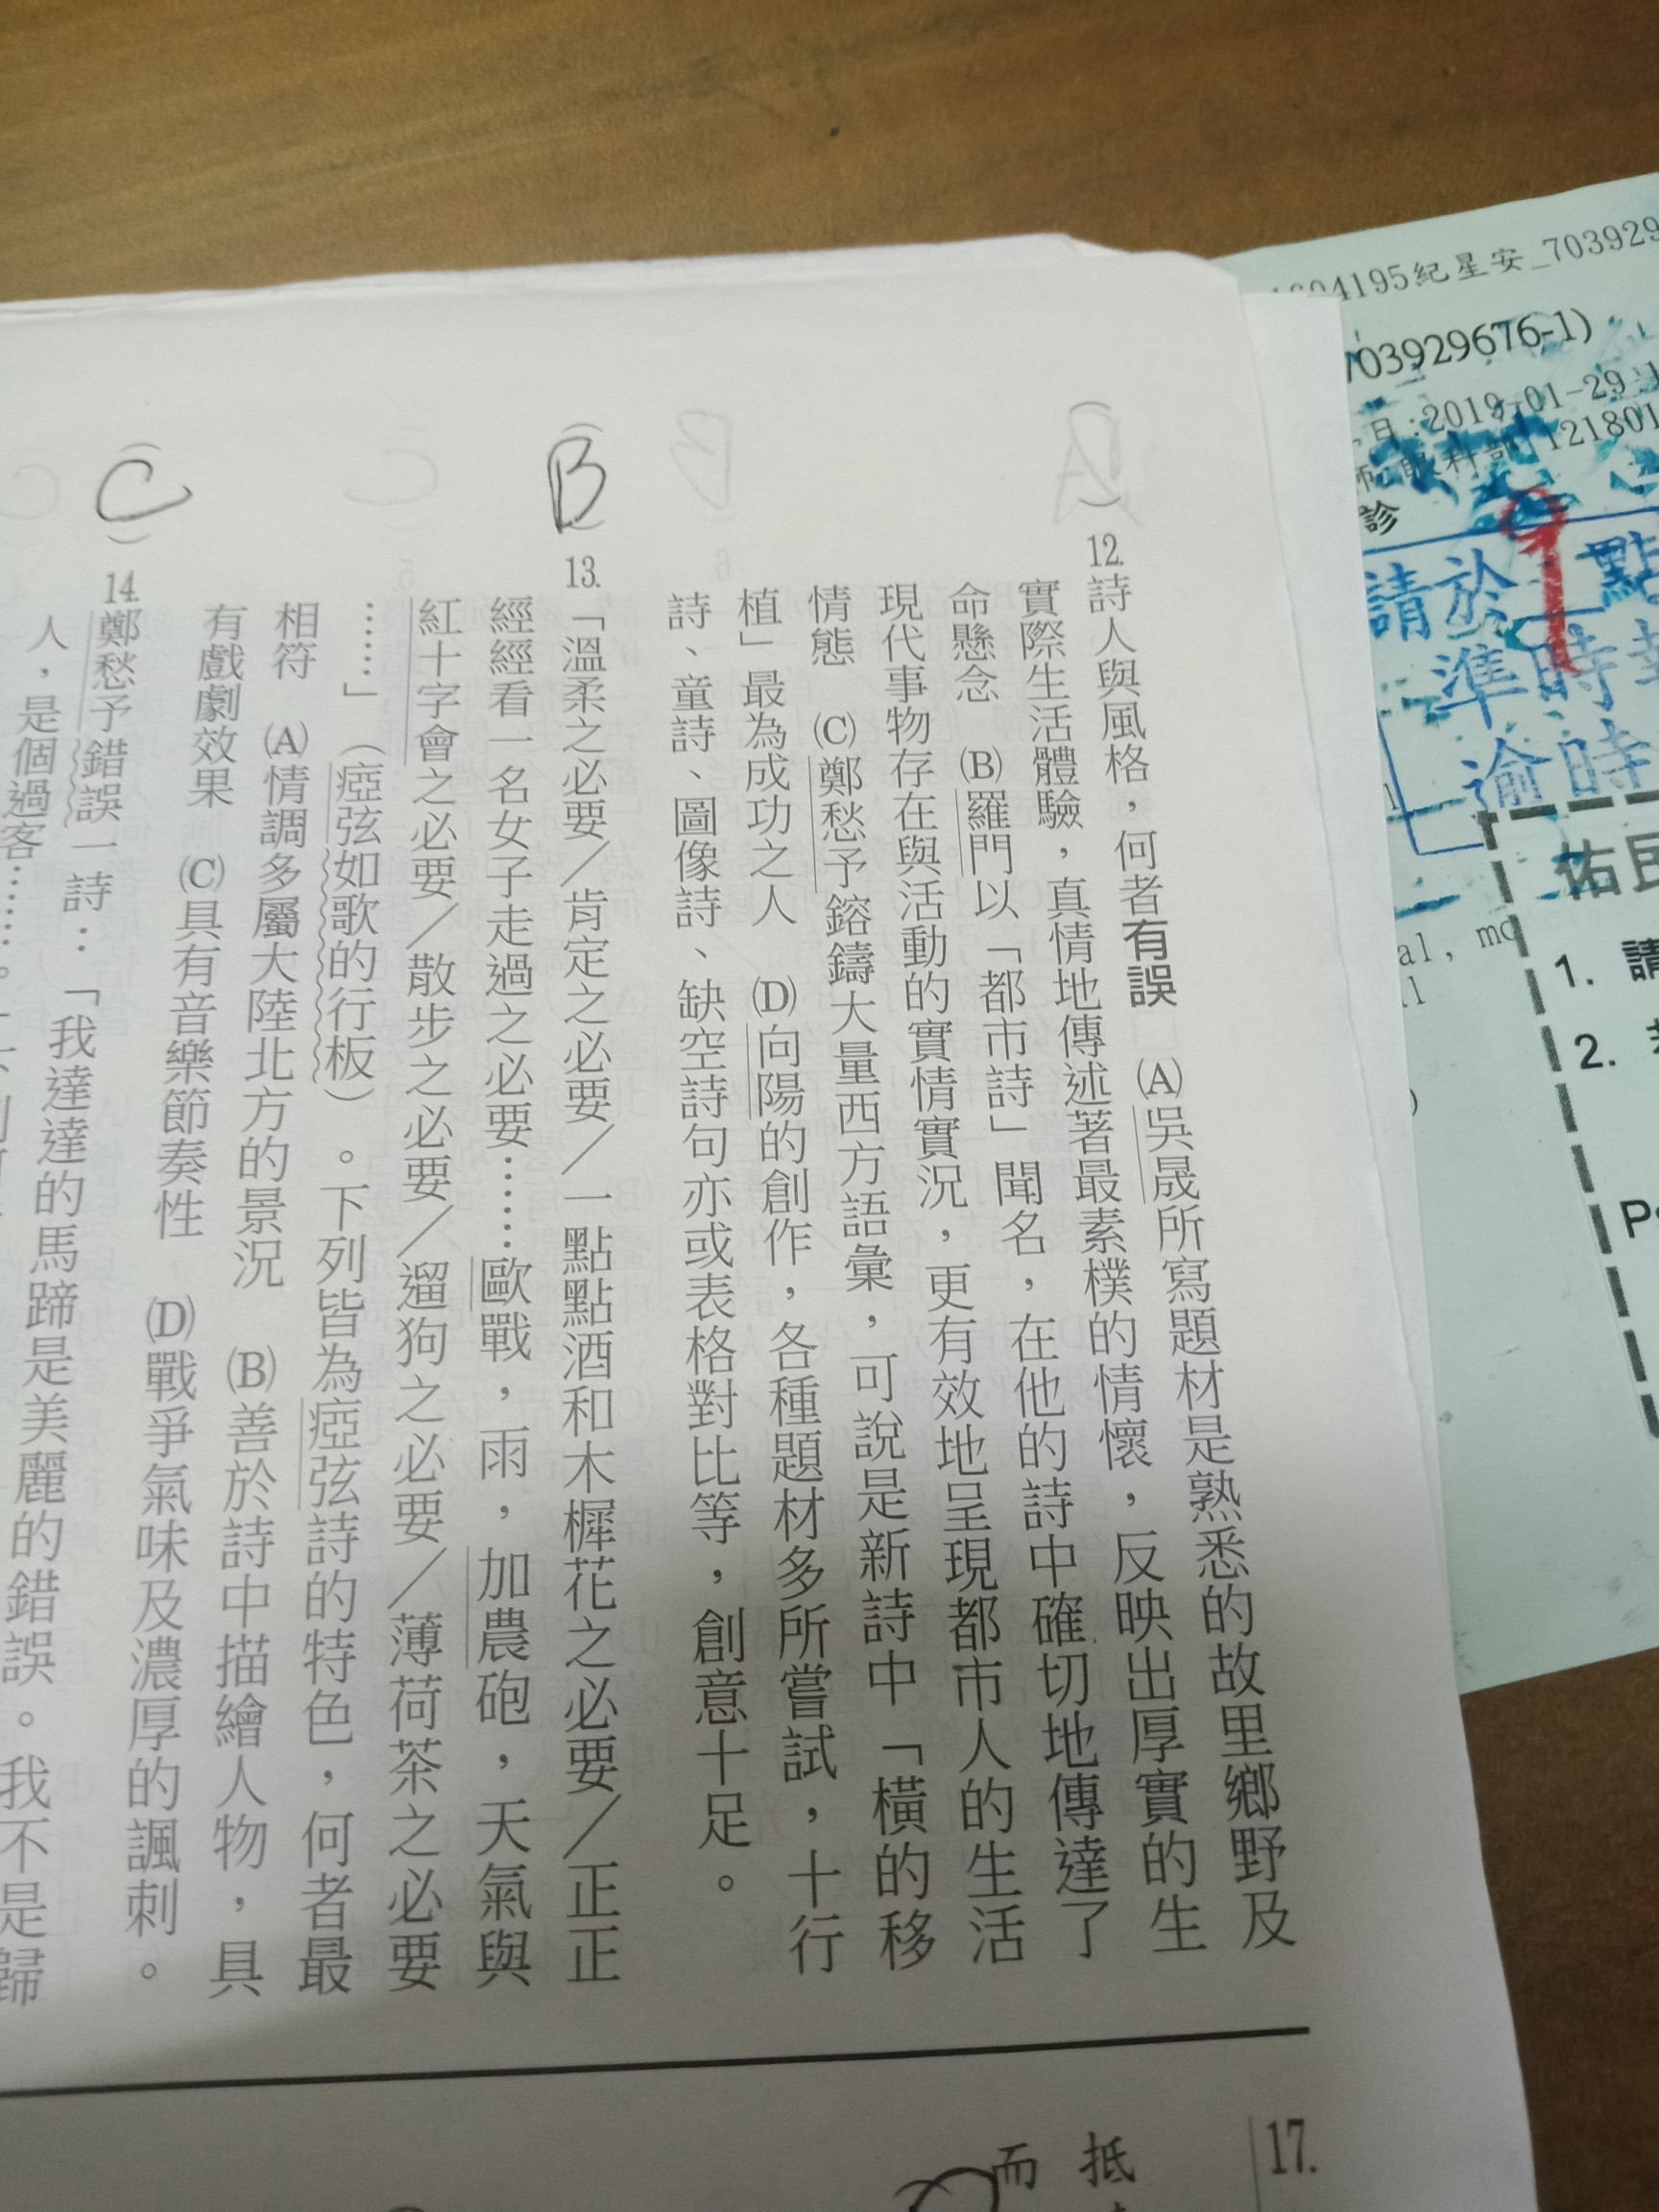 12.詩人與風格，何者有誤　(A)吳晟所寫題材是熟悉的故里鄉野及
實際生活體驗，真情地傳述著最素樸的情懷，反映出厚實的生
命懸念　(B)羅門以「都市詩」聞名，在他的詩中確切地傳達了
現代事物存在與活動的實情實況，更有效地呈現都市人的生活
情態　(C)鄭愁予鎔鑄大量西方語彙，可說是新詩中「橫的移
植」最為成功之人　(D)向陽的創作，各種題材多所嘗試，十行
詩、童詩、圖像詩、缺空詩句亦或表格對比等，創意十足。
(B)13.「溫柔之必要／肯定之必要／一點點酒和木樨花之必要／正正
經經看一名女子走過之必要……歐戰，雨，加農砲，天氣與
紅十字會之必要／散步之必要／遛狗之必要／薄荷茶之必要
……」（瘂弦如歌的行板）。下列皆為瘂弦詩的特色，何者最
相符　(A)情調多屬大陸北方的景況　(B)善於詩中描繪人物，具
有戲劇效果　(C)具有音樂節奏性　(D)戰爭氣味及濃厚的諷刺。
(C)14.鄭愁予錯誤一詩：「我達達的馬蹄是美麗的錯誤。我不是歸
人，是個過客……。」
17.
抵
而
紀星安_703929
703929676-1)
日:2019-01-29
眼科部 121801
診
請於 9 點
準時
逾時
佑民
al, mo
1. 請
2.